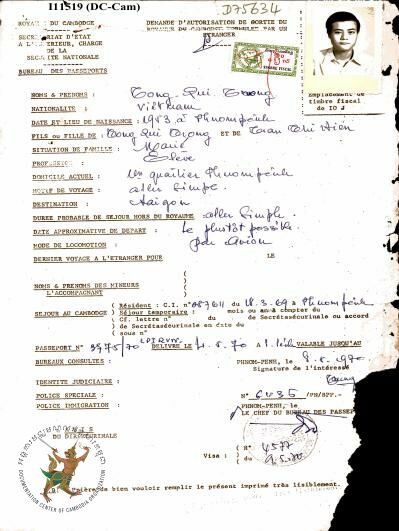 I11519 (DC-Cam)
D75634
ROYAUME DU CAMBODGE
DEMANDE D'AUTORISATION DE SORTIE DU
ROYAUME DU CAMBODGE FORMULEE PAR UN
ETRANGER
SECRETARIAT D'ETAT
A L'INTERIEUR, CHARGE
DE LA
SECURITE NATIONALE
BUREAU DES PASSEPORTS
Emplacement de
timbre fiscal
de 10
NOMS & PRENOMS : Tong Qui Truong
NATIONALITE : Vietnam
DATE ET LIEU DE NAISSANCE : 1953 à Phnompenh
FILS ou FILLE DE : Tong Qui Trong ET DE Tran Thi Hien
SITUATION DE FAMILLE : Marié
PROFESSION : Elève
DOMICILE ACTUEL : quartier Phnompenh
MOTIF DE VOYAGE : aller simple.
DESTINATION : Saigon
DUREE PROBABLE DE SEJOUR HORS DU ROYAUME aller simple.
DATE APPROXIMATIVE DE DEPART : Le plutôt possible
MODE DE LOCOMOTION : par avion
DERNIER VOYAGE A L'ETRANGER POUR LE
NOMS & PRENOMS DES MINEURS
L'ACCOMPAGNANT :
( Résident : C.I. n° du 18.3.69 à Phnompenh
SEJOUR AU CAMBODGE ( Séjour temporaire : mois ou an à compter du
( Cf. lettre n° du de Secrétaréduriale ou accord
( de Secrétaréduriale en date du
( sous n°
PASSEPORT N° DELIVRE LE 4.8.70 VALABLE JUSQU'AU
BUREAUX CONSULTES : PHNOM-PENH, le 8.8.1970
Signature de l'intéressé
IDENTITE JUDICIAIRE :
POLICE SPECIALE : N° 6035 /PH/SPP.-
POLICE IMMIGRATION : PHNOM-PENH, le
LE CHEF DU BUREAU DES PASSEP
A V I S
DU
Visa : ( N° 4577
( du
de bien vouloir remplir le présent imprimé très lisiblement.
DOCUMENTATION CENTER OF CAMBODIA ORGANIZATION